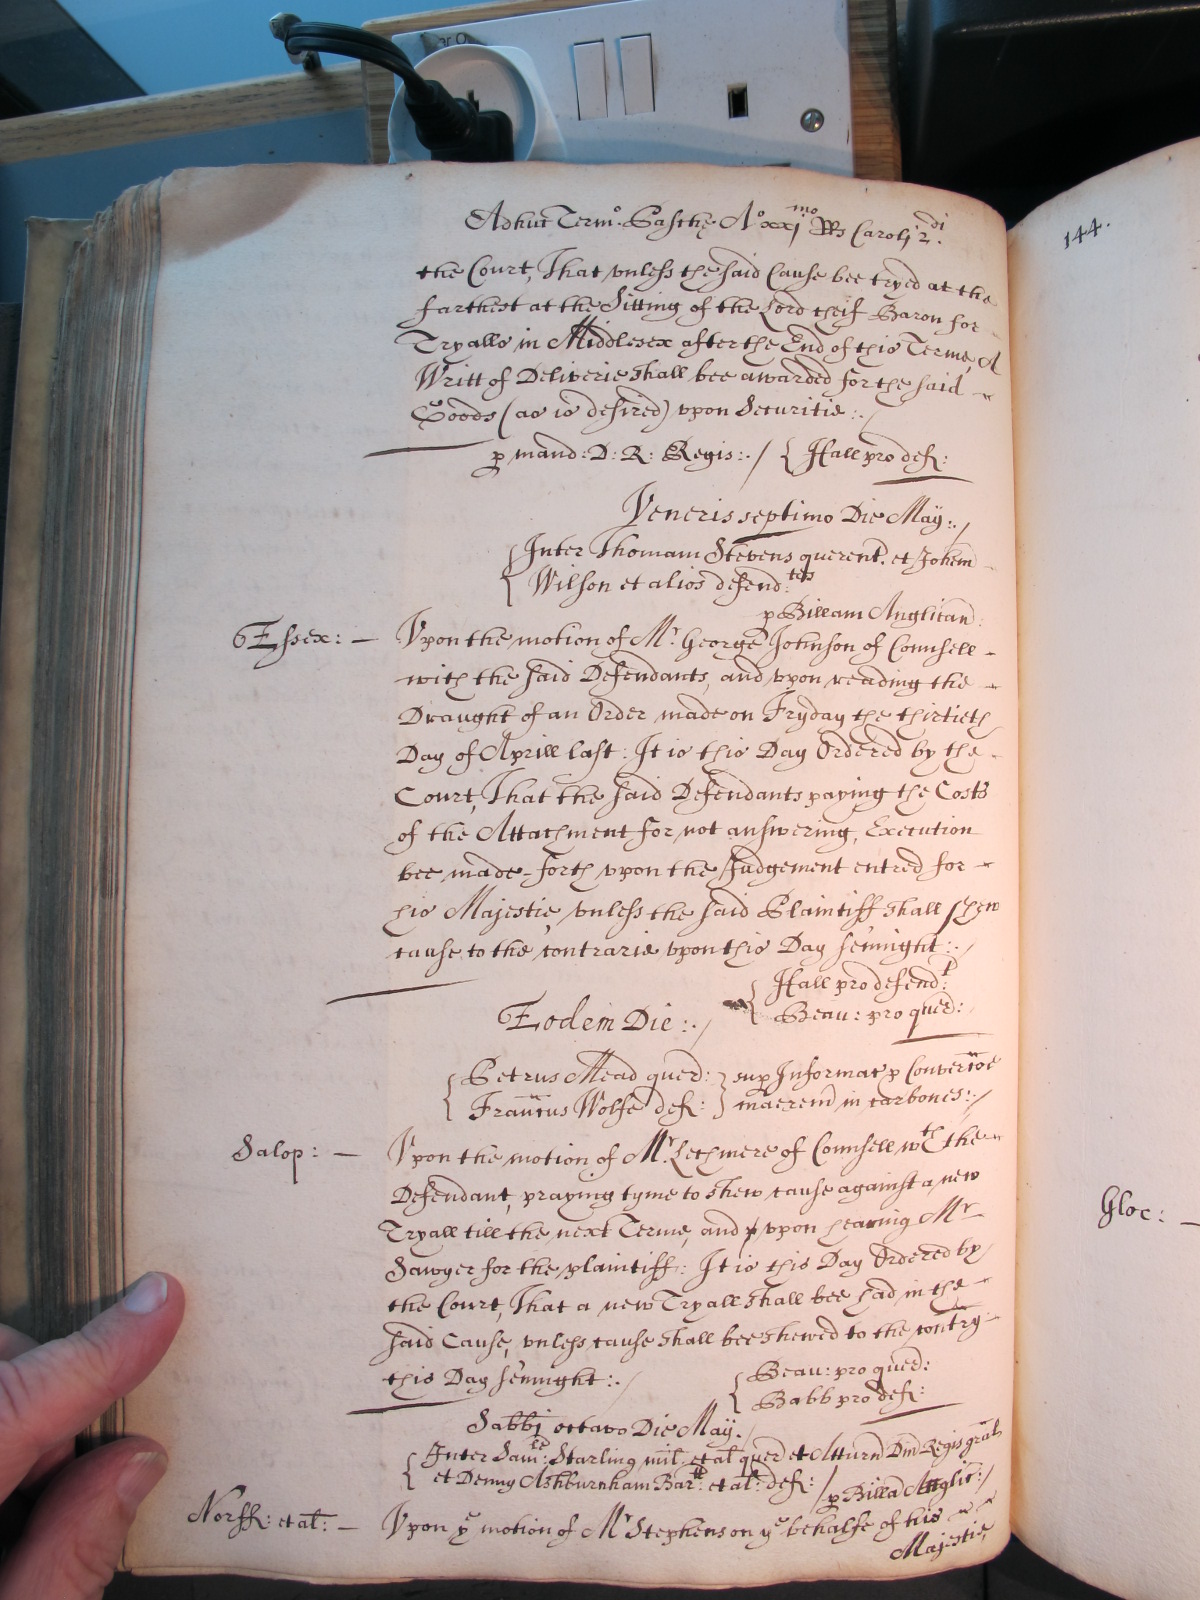 Adhuc Term.o Pasche A.o xxj mo Rs Caroli 2 di.
the Court, That vnless the said Cause bee tryed at the
farthest at the Sitting of the Lord cheif Baron for
Tryalls in Middlesex after the End of this Terme, A
Writt of Deliverie shall bee awarded for the said
Goods (as is desired) vpon Securitie:.
p mand: D: R: Regis:. / { Hall pro def:
Veneris septimo Die May:.
Inter Thomam Stevens querent. et Johem
Wilson et alios defend: tes
p Billam Anglican:
Essex: — Vpon the motion of Mr. George Johnson of Counsell
with the said Defendants, and vpon reading the
Draught of an Order made on Fryday the thirtieth
Day of Aprill last: It is this Day Ordered by the
Court, That the said Defendants paying the Costs
of the Attachment for not answering, Execution
bee made forth vpon the Judgement entred for
his Majestie, vnless the said Plaintiff shall shew
cause to the contrarie vpon this Day sennight:.
Hall pro defend t
Eodem Die:. { Beau: pro quer:
Petrus Mead quer: } sup Informat p Converc̃oe
Franc̃us Wolfe def: } maerem in carbones:.
Salop: — Vpon the motion of Mr. Lechmere of Counsell wth the
Defendant, praying tyme to shew cause against a new
Tryall till the next Terme, and vpon hearing Mr
Sawyer for the plaintiff: It is this Day Ordered by
the Court, That a new Tryall shall bee had in the
said Cause, vnless cause shall bee shewed to the contry
this Day sennight:.
Beau: pro quer:
Babb pro def:
Sabbi octavo Die May.
Inter Sam: Starling mil. et al quer et Atturn Dni Regis gral
et Denny Ashburnham Bar tt: et al: def: / p Billa Anglic:
Norff: et al: — Vpon ye motion of Mr Stephens on ye behalfe of his
Majestie,
144.
Gloc: —